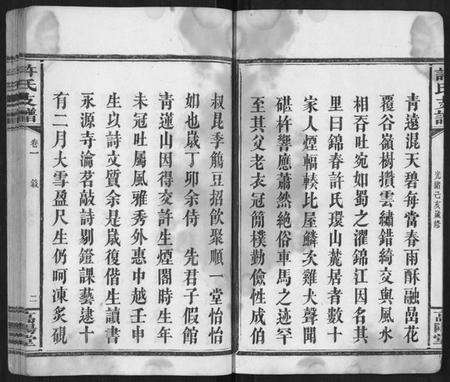 許氏支譜
光緒己亥歲修
高陽堂
青遠混天碧每當春雨酥融嵒花
覆谷嶺樹攢雲繡錯綺交與風水
相吞吐宛如蜀之濯錦江因名其
里曰錦春許氏環山麓居者數十
家人煙輻輳比屋鱗次雞犬聲聞
碪杵響應蕭然絶俗車馬之迹罕
至其父老衣冠簡樸勤儉性成伯
叔昆季觴豆招飲聚順一堂怡怡
如也歲丁卯余侍先君子假館
青蓮山因得交許生煙閣時生年
未冠吐屬風雅秀外惠中越壬申
生以詩文質余是嵗復偕生讀書
永源寺瀹茗敲詩剔鐙課藝逮十
有二月大雪盈尺生仍呵凍炙硯
許氏支譜
卷一
敘
二
高陽堂